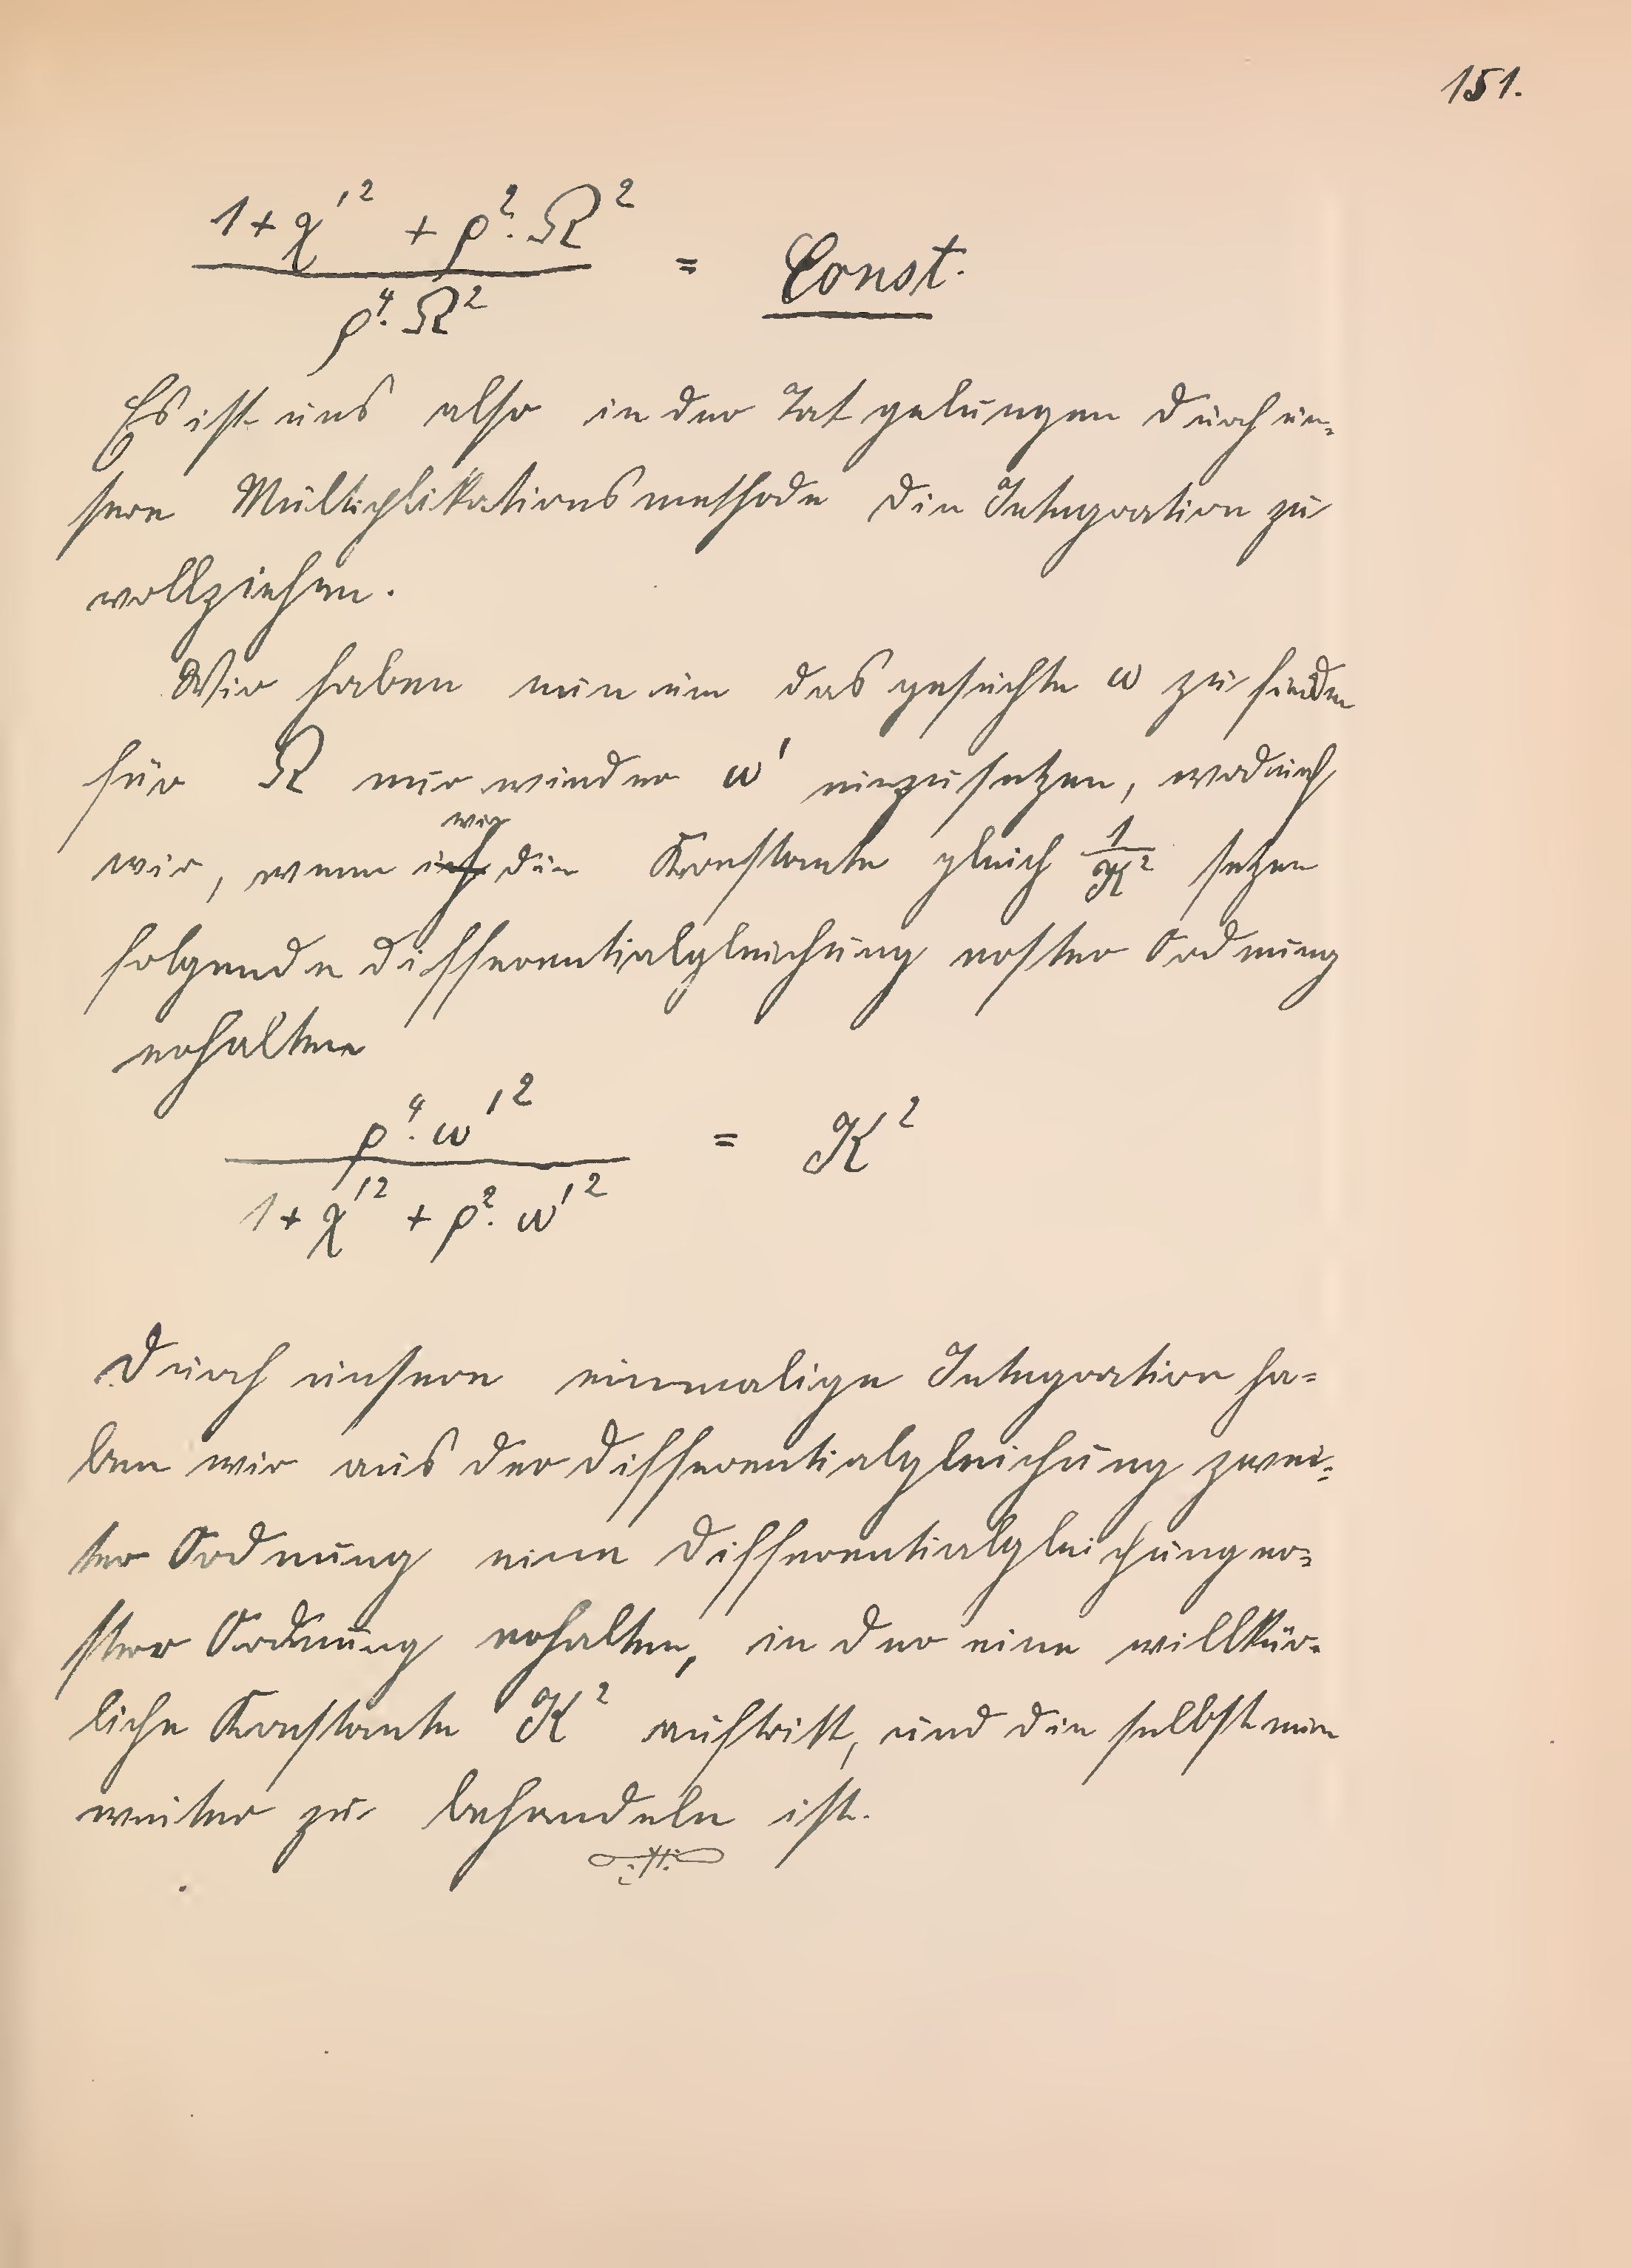 151.
(1 + χ'² + ρ²·Ω²) / (ρ⁴·Ω²) = Const.
Es ist uns also in der Tat gelungen durch un-
sere Multiplikationsmethode die Integration zu
vollziehen.
Wir haben nun um das gesuchte ω zu finden
für Ω nur wieder ω' einzusetzen, wodurch
wir
wir, wenn ich die Konstante gleich 1/K² setzen
folgende differentialgleichung erster Ordnung
erhalten
(ρ⁴·ω'²) / (1 + χ'² + ρ²·ω'²) = K²
Durch unsere einmalige Integration ha-
ben wir aus der differentialgleichung zwei-
ter Ordnung eine differentialgleichung er-
ster Ordnung erhalten, in der eine willkür-
liche Konstante K² auftritt, und die selbst nun
weiter zu behandeln ist.